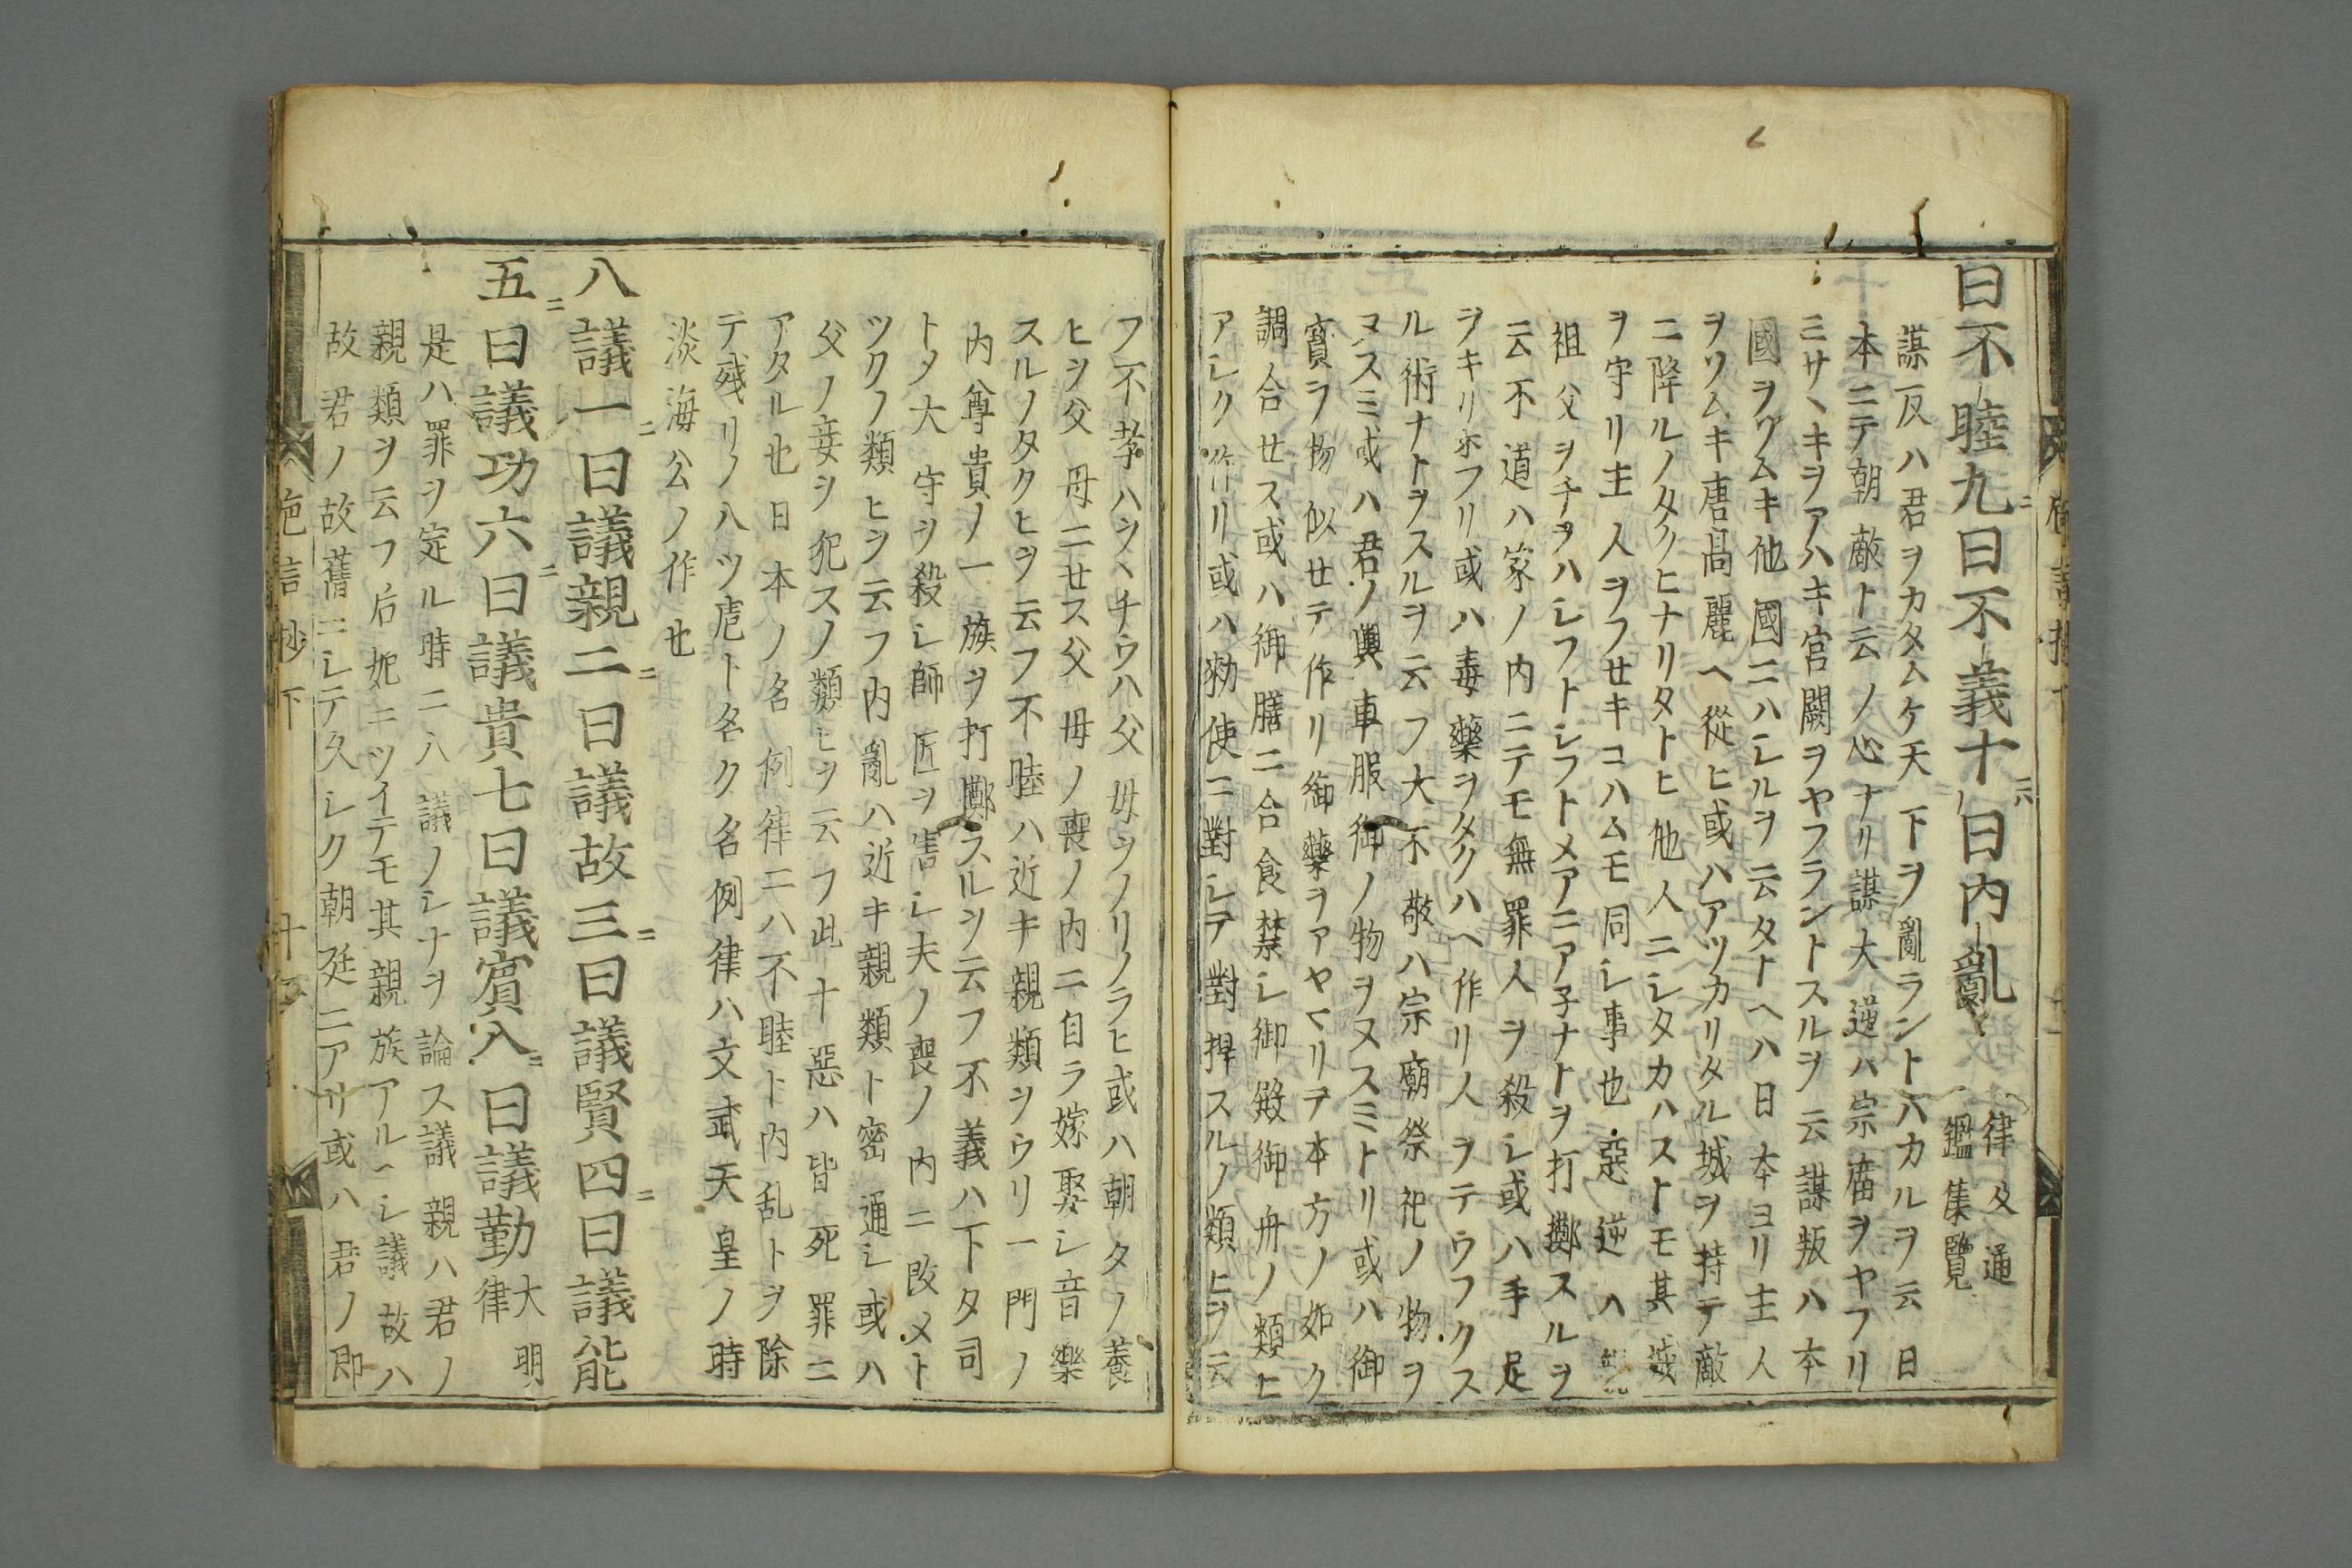 曰不睦九曰不義十曰内亂 律又通
鑑集覽
謀反ハ君ヲカタムケ天下ヲ亂ラントハカルヲ云日
本ニテ朝敵ト云ノ心ナリ謀大逆ハ宗庿ヲヤフリ
ミサヽキヲアハキ宮闕ヲヤフラントスルヲ云謀叛ハ本
國ヲソムキ他國ニハシルヲ云タトヘハ日本ヨリ主人
ヲソムキ唐高麗ヘ從ヒ或ハアツカリタル城ヲ持テ敵
ニ降ルノタクヒナリタトヒ他人ニシタカハストモ其城
ヲ守リ主人ヲフセキコハムモ同シ事也惡逆ハ
祖父ヲチヲハシフトシフトメアニア子ナトヲ打擲スルヲ
云不道ハ家ノ内ニテモ無罪人ヲ殺シ或ハ手足
ヲキリホフリ或ハ毒藥ヲタクハヘ作リ人ヲテウフクス
ル術ナトヲスルヲ云フ大不敬ハ宗廟祭祀ノ物ヲ
ヌスミ或ハ君ノ輿車服御ノ物ヲヌスミトリ或ハ御
寳ヲ物似セテ作リ御藥ヲアヤマリテ本方ノ如ク
調合セス或ハ御膳ニ合食禁シ御殿御舟ノ類ヒ
アシク作リ或ハ勅使ニ對シテ對捍スルノ類ヒヲ云
フ不孝ハヲヽチウハ父母ヲノリノラヒ或ハ朝夕ノ養
ヒヲ父母ニセス父母ノ喪ノ内ニ自ラ嫁娶シ音樂
スルノタクヒヲ云フ不睦ハ近キ親類ヲウリ一門ノ
内尊貴ノ一族ヲ打擲スルヲ云フ不義ハ下タ司
トメ大守ヲ殺シ師匠ヲ害シ夫ノ喪ノ内ニ改メト
ツクノ類ヒヲ云フ内亂ハ近キ親類ト密通シ或ハ
父ノ妾ヲ犯スノ類ヒヲ云フ此十惡ハ皆死罪ニ
アタル也日本ノ名例律ニハ不睦ト内乱トヲ除
テ殘リノ八ツ虐ト名ク名例律ハ文武天皇ノ時
淡海公ノ作也
八議一曰議親二曰議故三曰議賢四曰議能
五曰議功六曰議貴七曰議賓八曰議勤 大明
律
是ハ罪ヲ定ル時ニ八議ノシナヲ論ス議親ハ君ノ
親類ヲ云フ后妃ニツイテモ其親族アルヘシ議故ハ
故君ノ故舊ニシテ久シク朝廷ニアリ或ハ君ノ即